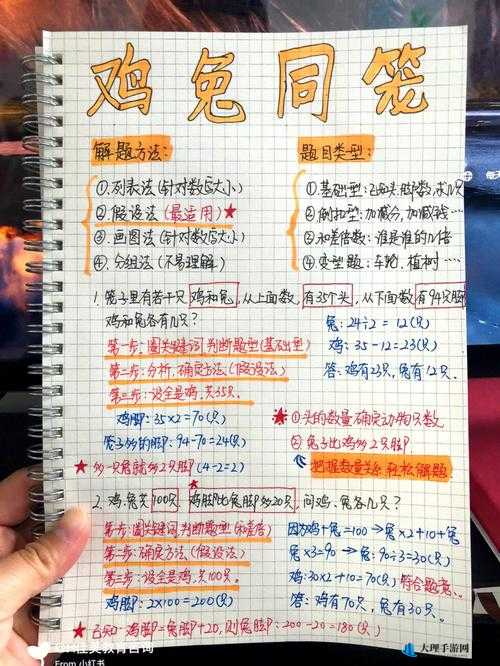 鸡兔同笼
解题方法:
①.列表法(针对数字大小)
②.假设法(最适用)★
③.画图法(针对数字大小)
④.分组法(不易理解)
题目类型:
①.基础型:已知头脚数,求只
②.倒扣型:加减分,加减钱…
③.和差倍数:谁是谁的几倍
④.变型题:车轮.植树…
1.笼子里有若干只鸡和兔,从上面数,有35个头,从下面数有94只脚
鸡和兔各有几只?
第一步:圈关键词,判断题型(基础型)
第二步:分析,确定方法,(假设法)
第三步:设全是鸡,共35只.
鸡脚:35×2=70(只)
答了多的脚:94-70=24(只)
★多一只兔就多2只脚(4-2=2)
兔:24÷2=12(只)
鸡:35-12=23(只)
答:鸡有23只,兔有12只.
★①头的数量确定动物只数
②兔子比鸡多2只脚.
把握数量关系 轻松解题
2.鸡.兔共100只 鸡脚比兔脚多20只,问鸡.兔各几只?
第一步:圈关键词,判断题型(和差倍)
第二步:确定方法,(假设法)
第三步:设全是鸡,共100只.
鸡脚:2×100=200(只)
★已知一鸡脚=兔脚+20,则兔脚:200-20=180(只)
因为鸡+兔=100→兔×2+10+兔
兔×3=90→兔:90÷3=30(只)
鸡:30×2+10=70(只)符合题意.
答:鸡有70只,兔有30只.
From 小红书
大理手游网